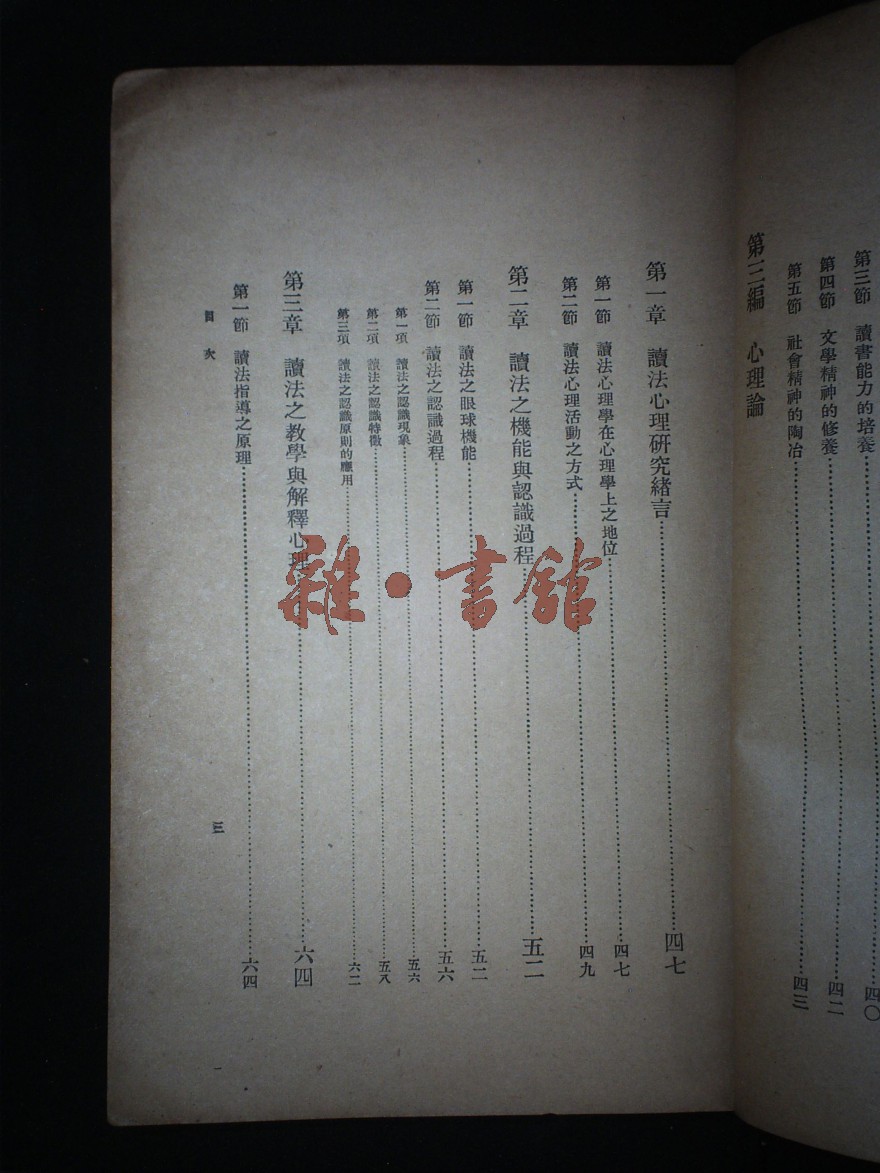 第三節　讀書能力的培養……四〇
第四節　文學精神的修養……四二
第五節　社會精神的陶冶……四三
第三編　心理論
第一章　讀法心理研究緒言……四七
第一節　讀法心理學在心理學上之地位……四七
第二節　讀法心理活動之方式……四九
第二章　讀法之機能與認識過程……五二
第一節　讀法之眼球機能……五二
第二節　讀法之認識過程……五六
第一項　讀法之認識現象……五六
第二項　讀法之認識特徵……五八
第三項　讀法之認識原則的應用……六二
第三章　讀法之教學與解釋心理……六四
第一節　讀法指導之原理……六四
目次
三
雜·書館